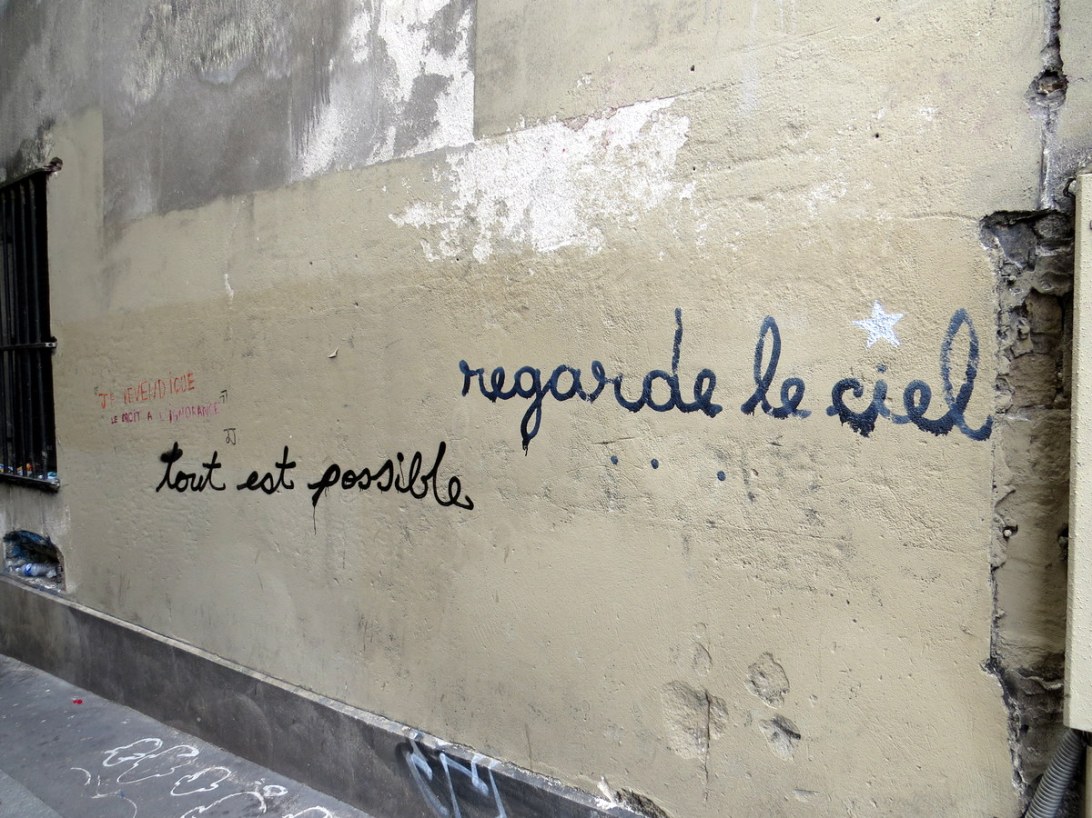 regarde le ciel
...
"JE REVENDIQUE
LE DROIT A L'IGNORANCE"
JJ
tout est possible